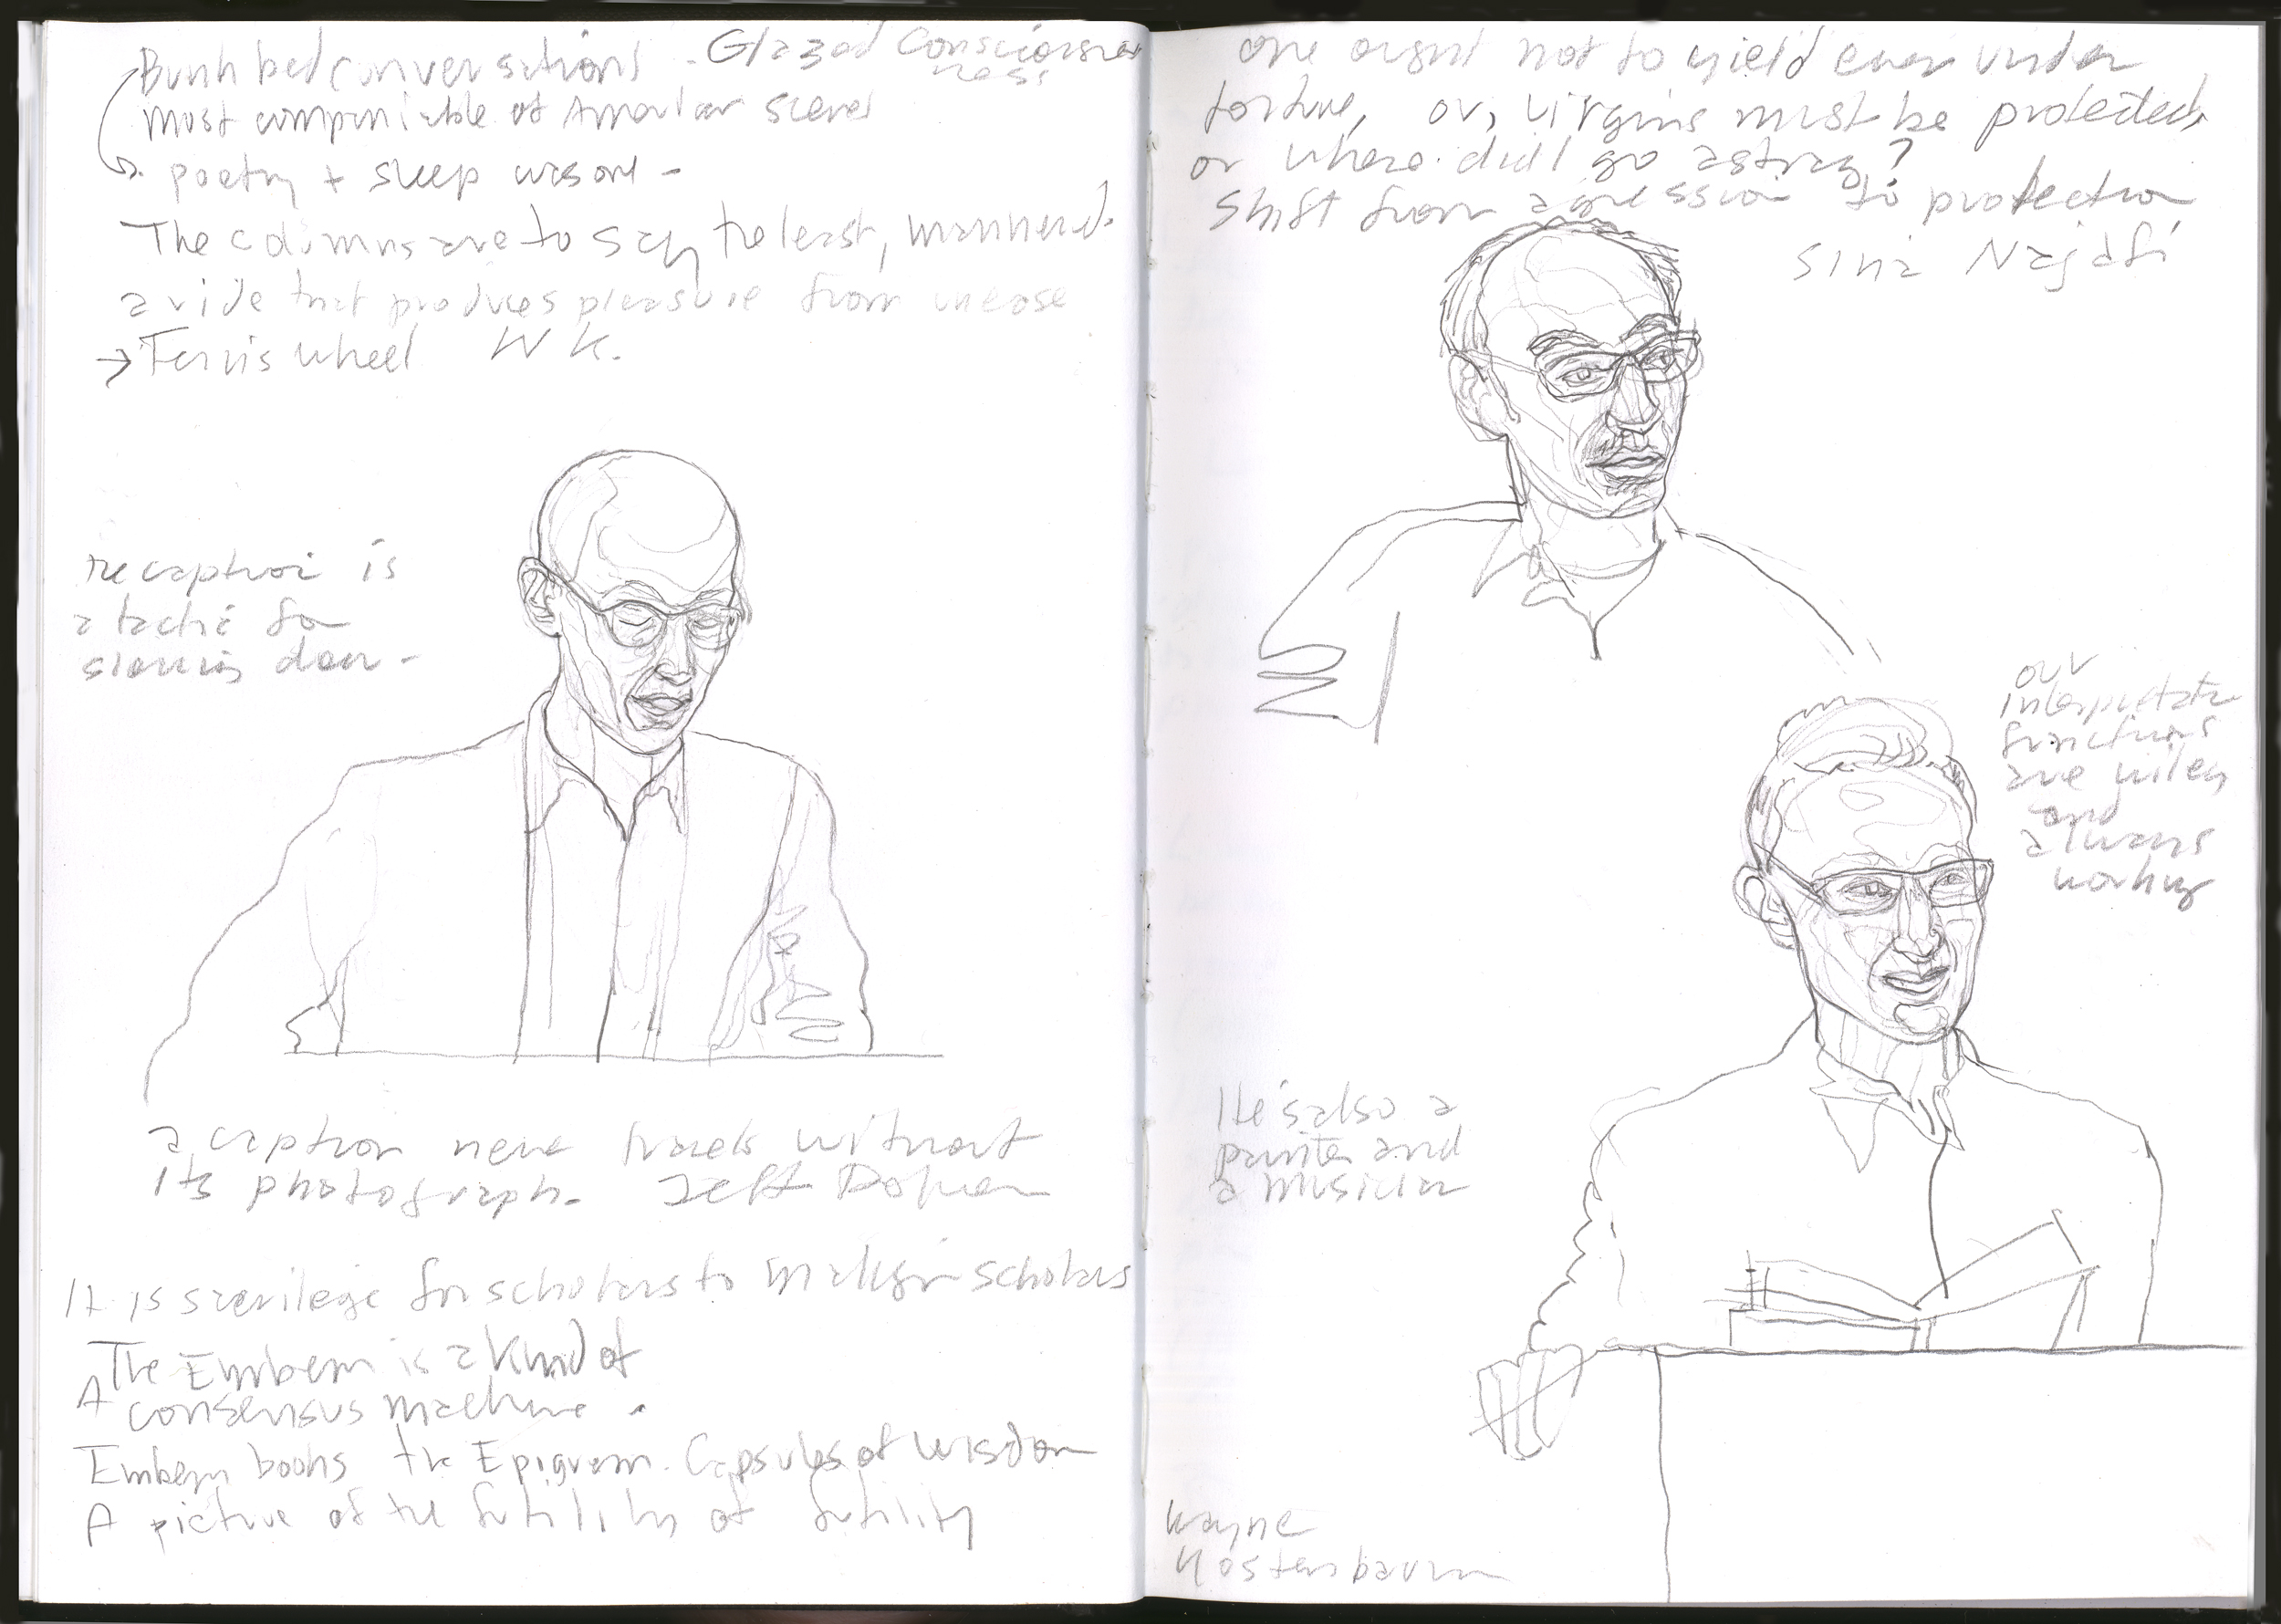 Bunk bed conversations - Glazed Consciousness
ness.
most companiable of American scenes
poetry + sleep
The columns are to say the least, mannered.
a ride that produces pleasure from unease
→ Ferris wheel W K.
recaption is
a tactic for
slowing down -
a caption never travels without
its photograph. Jeff Dolven
It is sacrilege for scholars to malign scholars
The Emblem is a kind of
A consensus machine.
Emblem books the Epigram. Capsules of wisdom
A picture of the futility of futility
one ought not to yield even under
torture, or, virgins must be protected,
or where did I go astray?
Shift from agression to protection
Sina Najafi
our
interpretative
functions
are wiley
and
always
working
He's also a
painter and
a musician
Wayne
Kostenbaum